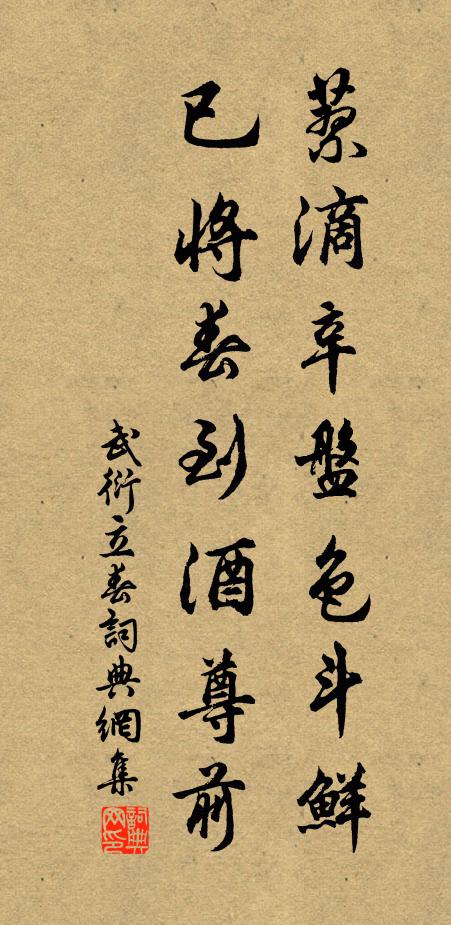 滴辛盤色斗鮮
已將春到酒尊前
武衍立春詞典網集
詞典
网印